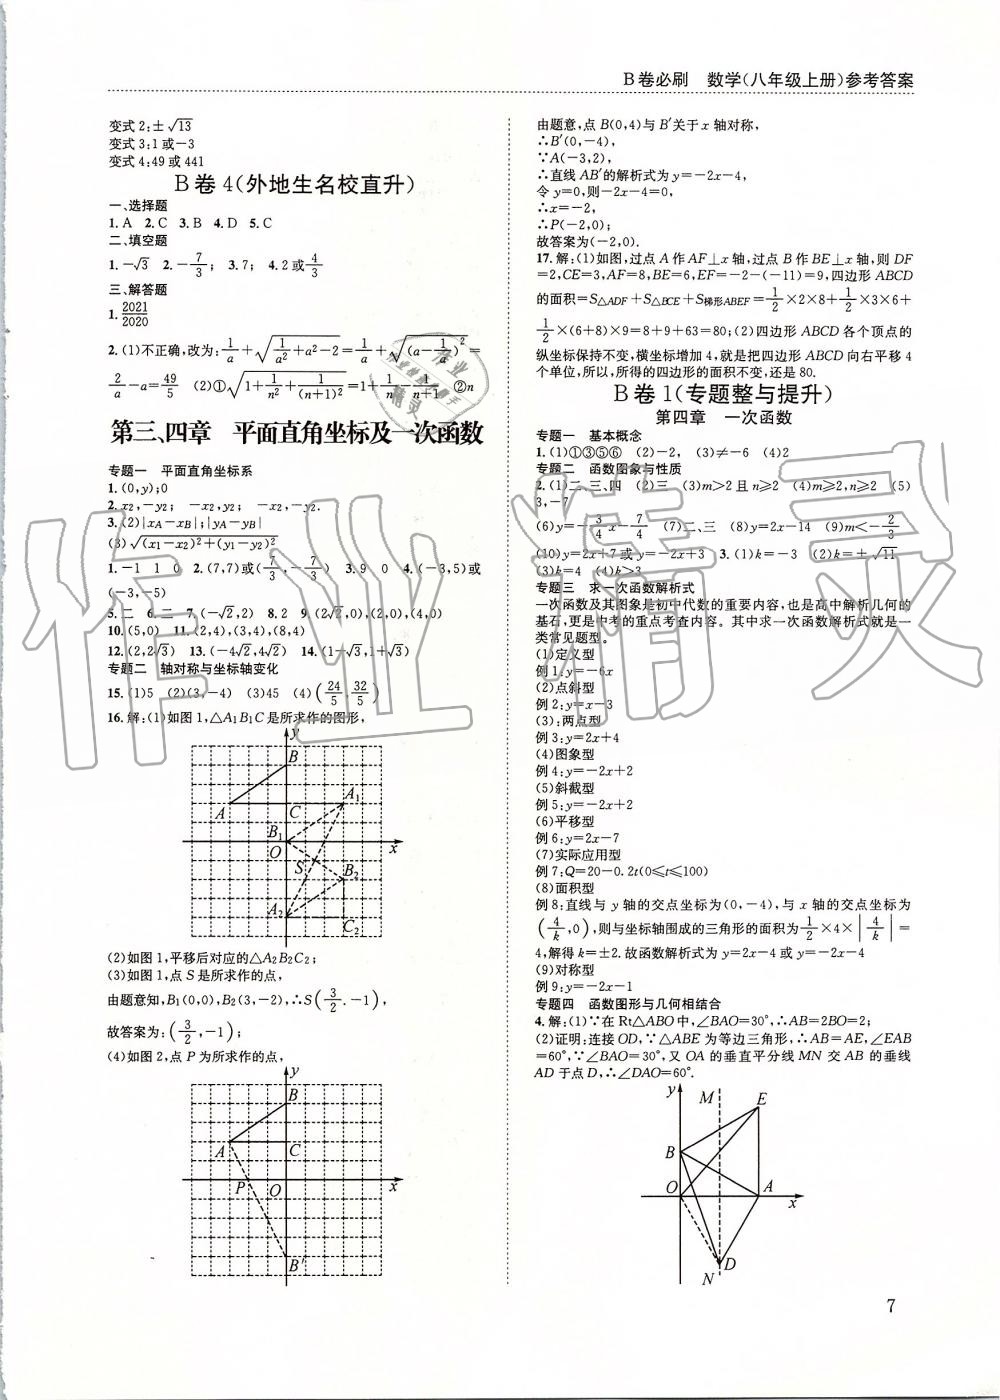 B卷必刷 数学(八年级上册)参考答案
变式2:±√13
变式3:1或-3
变式4:49或441
B卷4(外地生名校直升)
一、选择题
1.A 2.C 3.B 4.D 5.C
二、填空题
1.-√3 2.-7/3; 3.7; 4.2或4/3
三、解答题
1.2021/2020
2.(1)不正确,改为:1/a+√(1/a²+a²-2)=1/a+√((a-1/a)²)=
2/a-a=49/5 (2)①√(1+1/n²+1/(n+1)²)=1+1/n-1/(n+1) ②n
第三、四章 平面直角坐标及一次函数
专题一 平面直角坐标系
1.(0,y);0
2.x₂,-y₂; -x₂,y₂; -x₂,-y₂.
3.(2)|xA-xB|;|yA-yB|
(3)√((x₁-x₂)²+(y₁-y₂)²)
1.-1 1 0 2.(7,7)或(7/3,-7/3) 3.9 0 4.(-3,5)或
(-3,-5)
5.二 6.二 7.(-√2,2) 8.2 9.(2√2,0),(2,0),(4,0)
10.(5,0) 11.(2,4),(3,4),(8,4)
12.(2,2√3) 13.(-4√2,4√2) 14.(1+√3,1+√3)
专题二 轴对称与坐标轴变化
15.(1)5 (2)(3,-4) (3)45 (4)(24/5,32/5)
16.解:(1)如图1,△A₁B₁C是所求作的图形,
y
B
A
C
A₁
B₁
O
x
S
B₂
A₂
C₂
(2)如图1,平移后对应的△A₂B₂C₂;
(3)如图1,点S是所求作的点,
由题意知,B₁(0,0),B₂(3,-2),∴S(3/2.-1),
故答案为:(3/2,-1);
(4)如图2,点P为所求作的点,
y
B
A
C
P
O
x
B′
由题意,点B(0,4)与B′关于x轴对称,
∴B′(0,-4),
∵A(-3,2),
∴直线AB′的解析式为y=-2x-4,
令y=0,则-2x-4=0,
∴x=-2,
∴P(-2,0);
故答案为(-2,0).
17.解:(1)如图,过点A作AF⊥x轴,过点B作BE⊥x轴,则DF
=2,CE=3,AF=8,BE=6,EF=-2-(-11)=9,四边形ABCD
的面积=S△ADF+S△BCE+S梯形ABEF=1/2×2×8+1/2×3×6+
1/2×(6+8)×9=8+9+63=80;(2)四边形ABCD各个顶点的
纵坐标保持不变,横坐标增加4,就是把四边形ABCD向右平移4
个单位,所以,所得的四边形的面积不变,还是80.
B卷1(专题整与提升)
第四章 一次函数
专题一 基本概念
1.(1)①③⑤⑥ (2)-2, (3)≠-6 (4)2
专题二 函数图象与性质
2.(1)二、三、四 (2)三 (3)m>2且n≥2 (4)m≥2,n≥2 (5)
3,-7
(6)y=-3/4x-7/4 (7)二、三 (8)y=2x-14 (9)m<-2/3
(10)y=2x+7或y=-2x+3 3.(1)k=-3 (2)k=±√11
(3)k<4 (4)k>3
专题三 求一次函数解析式
一次函数及其图象是初中代数的重要内容,也是高中解析几何的
基石,更是中考的重点考查内容。其中求一次函数解析式就是一
类常见题型。
(1)定义型
例1:y=-6x
(2)点斜型
例2:y=x-3
(3):两点型
例3:y=2x+4
(4)图象型
例4:y=-2x+2
(5)斜截型
例5:y=-2x+2
(6)平移型
例6:y=2x-7
(7)实际应用型
例7:Q=20-0.2t(0≤t≤100)
(8)面积型
例8:直线与y轴的交点坐标为(0,-4),与x轴的交点坐标为
(4/k,0),则与坐标轴围成的三角形的面积为1/2×4×|4/k|=
4,解得k=±2.故函数解析式为y=2x-4或y=-2x-4
(9)对称型
例9:y=-2x-1
专题四 函数图形与几何相结合
4.解:(1)∵在Rt△ABO中,∠BAO=30°,∴AB=2BO=2;
(2)证明:连接OD,∵△ABE为等边三角形,∴AB=AE,∠EAB
=60°,∵∠BAO=30°,又OA的垂直平分线MN交AB的垂线
AD于点D,∴∠DAO=60°.
y
M
E
B
O
A
x
N
D
7
作业精灵